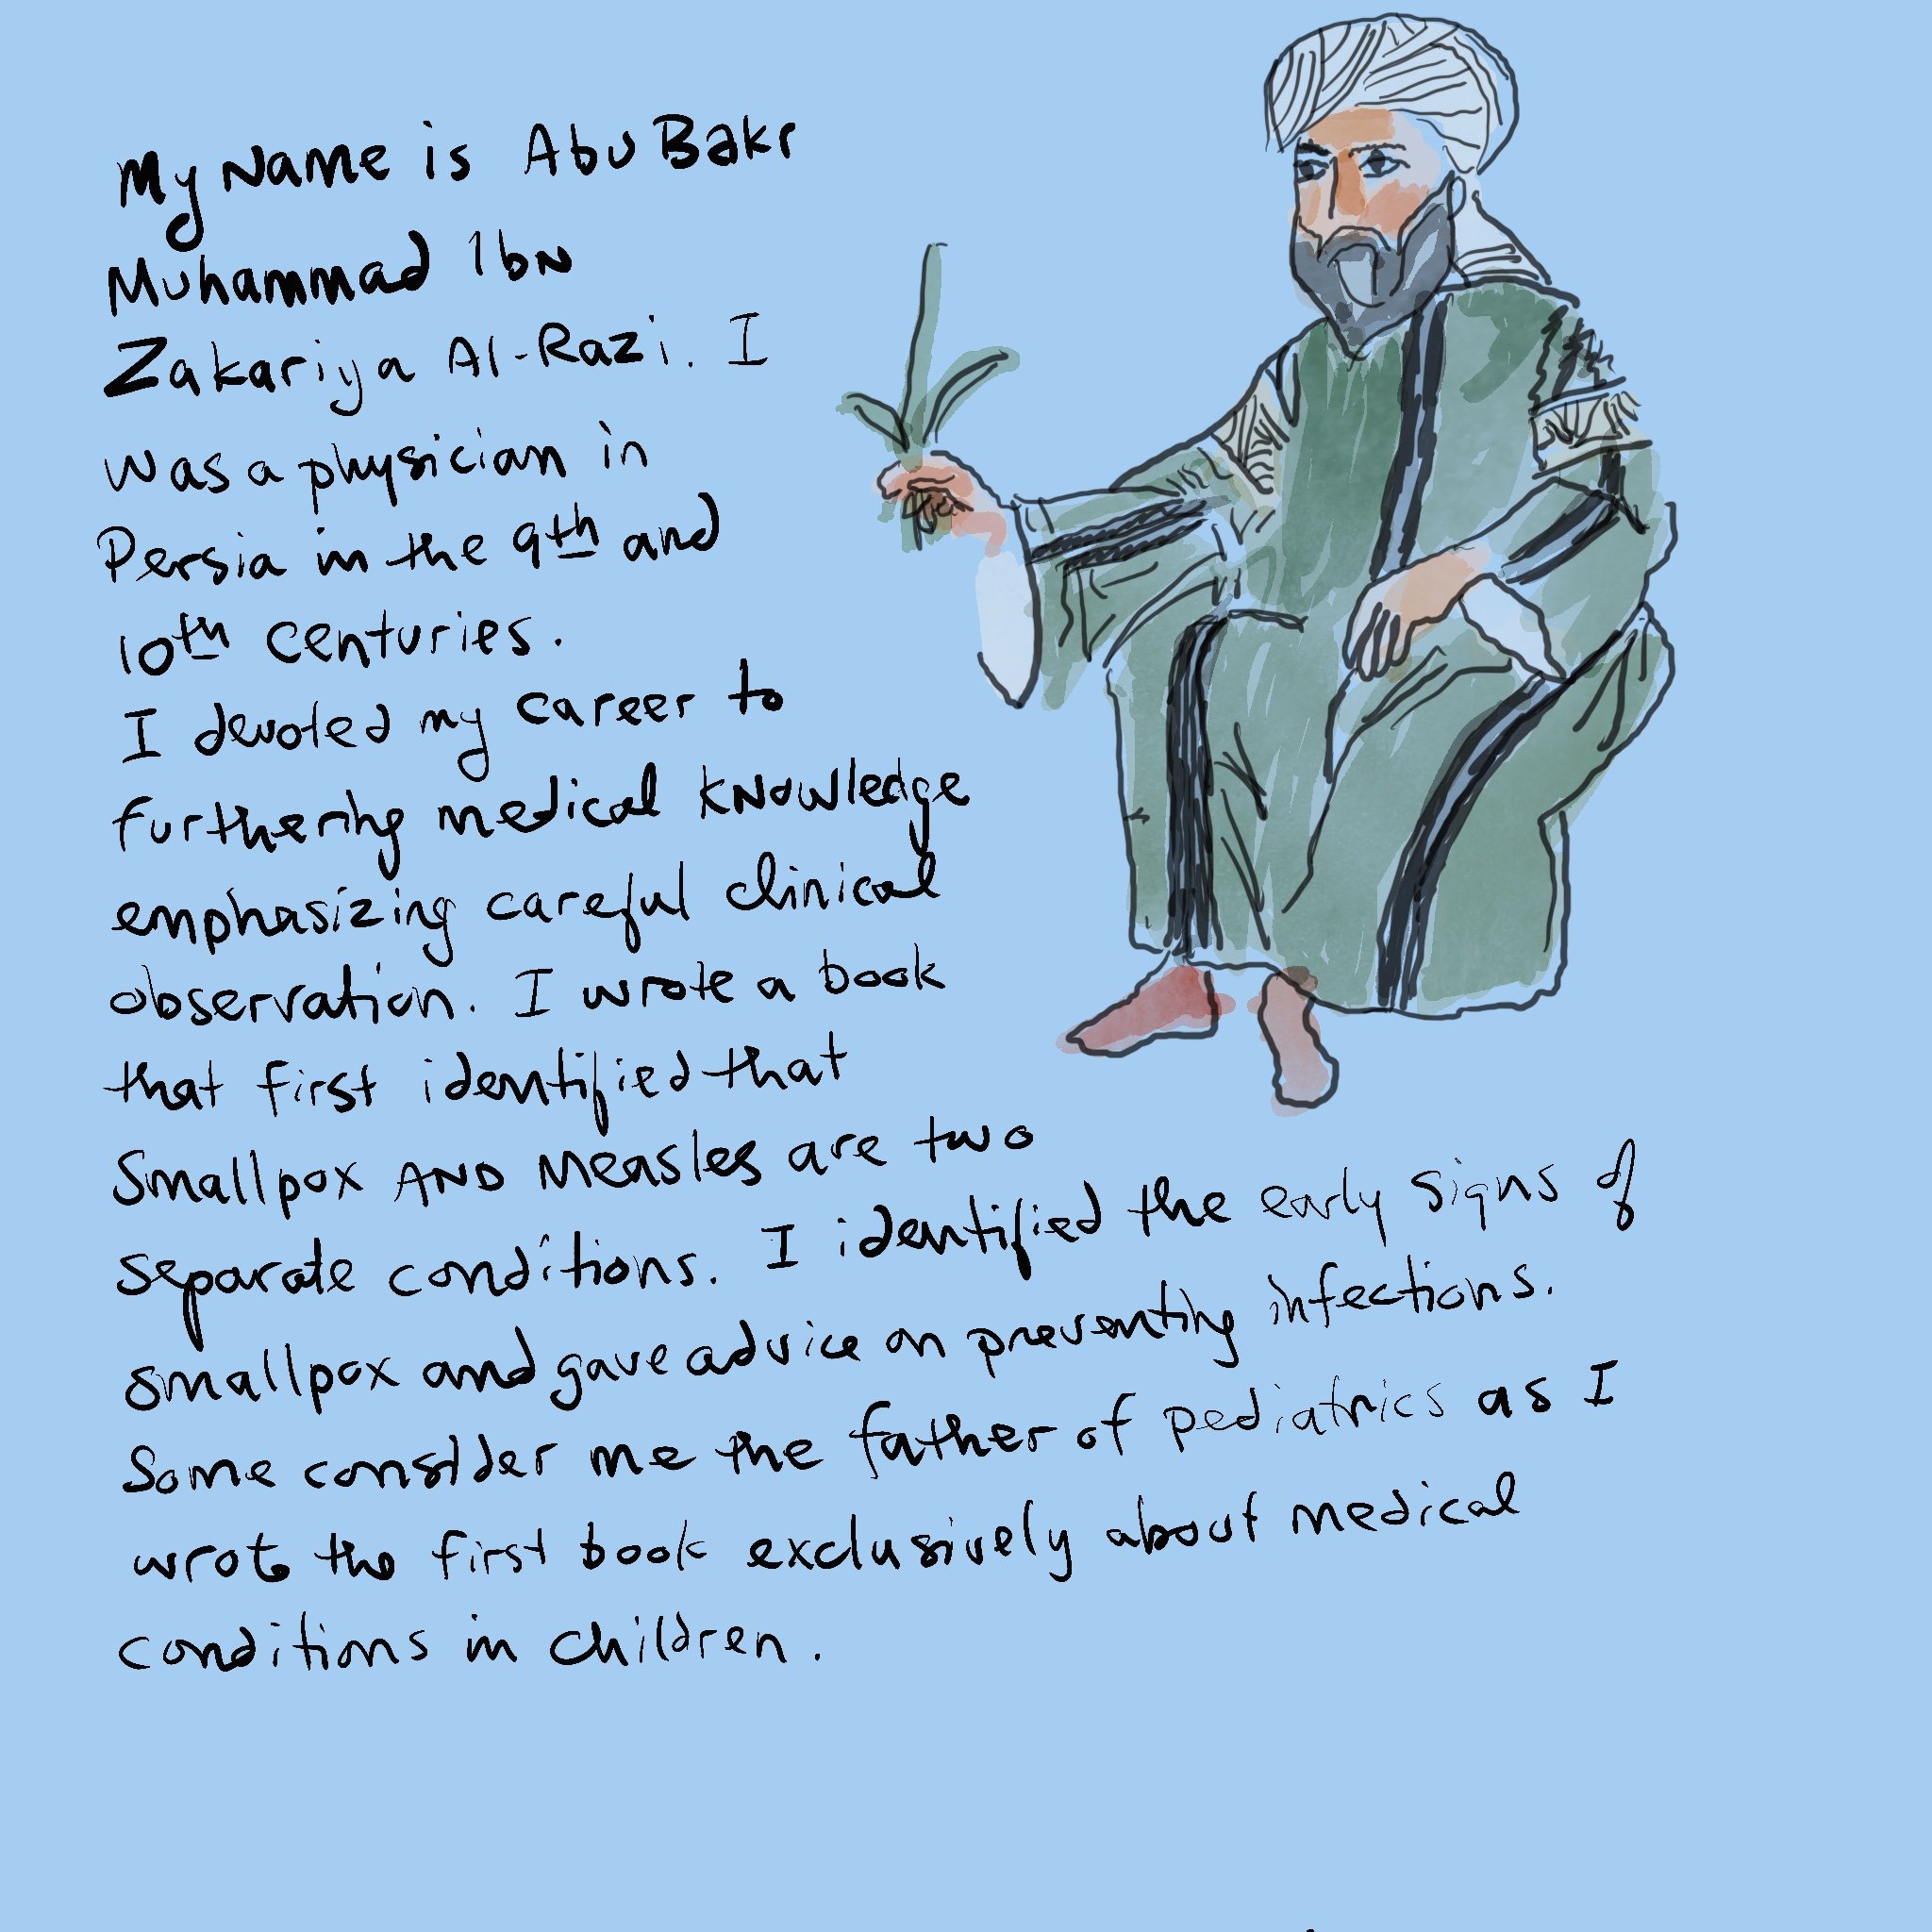 My Name is Abu Bakr
Muhammad Ibn
Zakariya Al-Razi. I
was a physician in
Persia in the 9th and
10th centuries.
I devoted my career to
furthering medical knowledge
emphasizing careful clinical
observation. I wrote a book
that first identified that
Smallpox AND Measles are two
separate conditions. I identified the early signs of
smallpox and gave advice on preventing infections.
Some consider me the father of pediatrics as I
wrote the first book exclusively about medical
conditions in children.